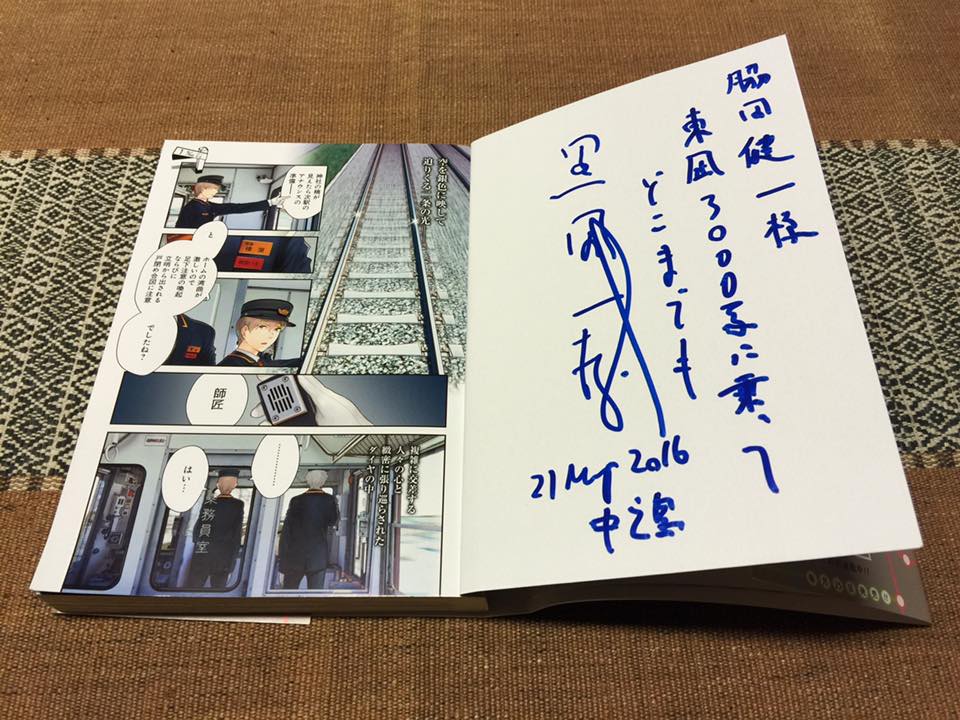 脇田健一様
3000系に乗って
どこまでも
21 May 2016
中之島
空を銀色に映して
迫りくる一条の光
神社の楠が
見えたら次駅の
アナウンスの
準備――
と
ホームの湾曲が
激しいので
足下注意の喚起
ならびに
立明から出される
戸閉め合図に注意
でしたね?
師匠
複雑に交差する
人々の心と
緻密に張り巡らされた
ダイヤの中
…………
はい…
乗務員室